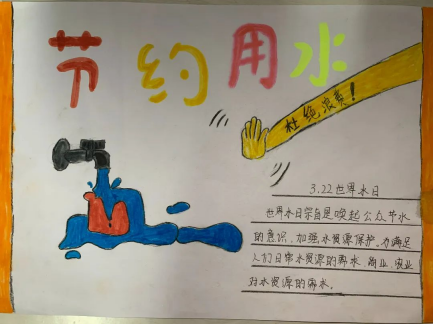 节约用水
杜绝浪费！
3.22世界水日
世界水日宗旨是唤起公众节水
的意识，加强水资源保护。为满足
人们日常水资源的需求，商业，农业
对水资源的需求。